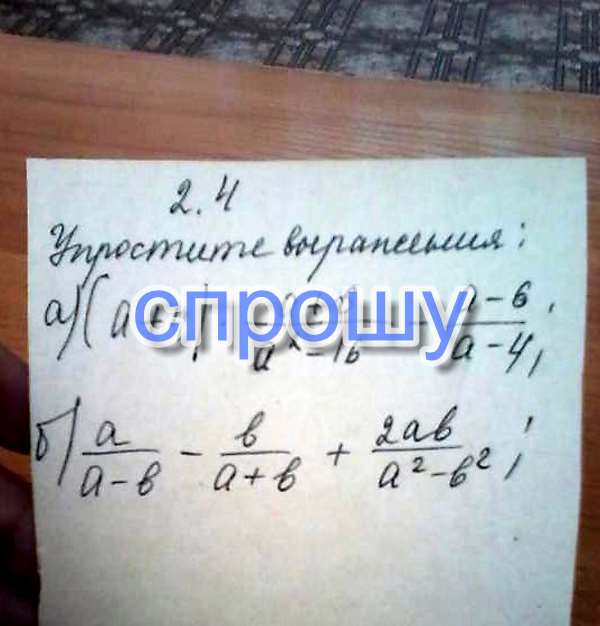 2.4
Упростите выражения:
а) (a + спрошу a² - 16 a - 6 / a - 4;
б) a / a - b - b / a + b + 2ab / a² - b²;